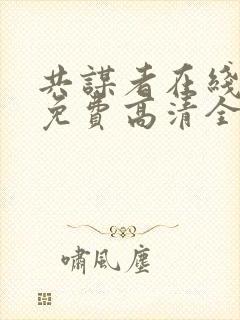 共謀者在綫
免費高清全
嘯風塵